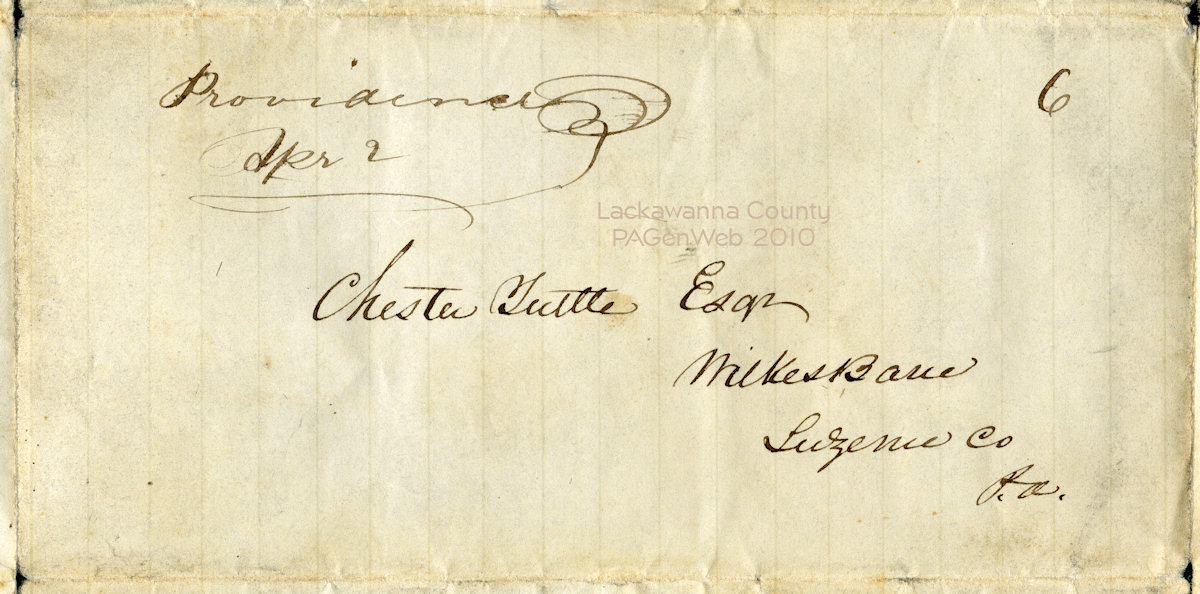 Providence
6
Apr 2
Lackawanna County
PAGenWeb 2010
Chester Tuttle Esqr
Wilkes Barre
Luzerne Co
Pa.